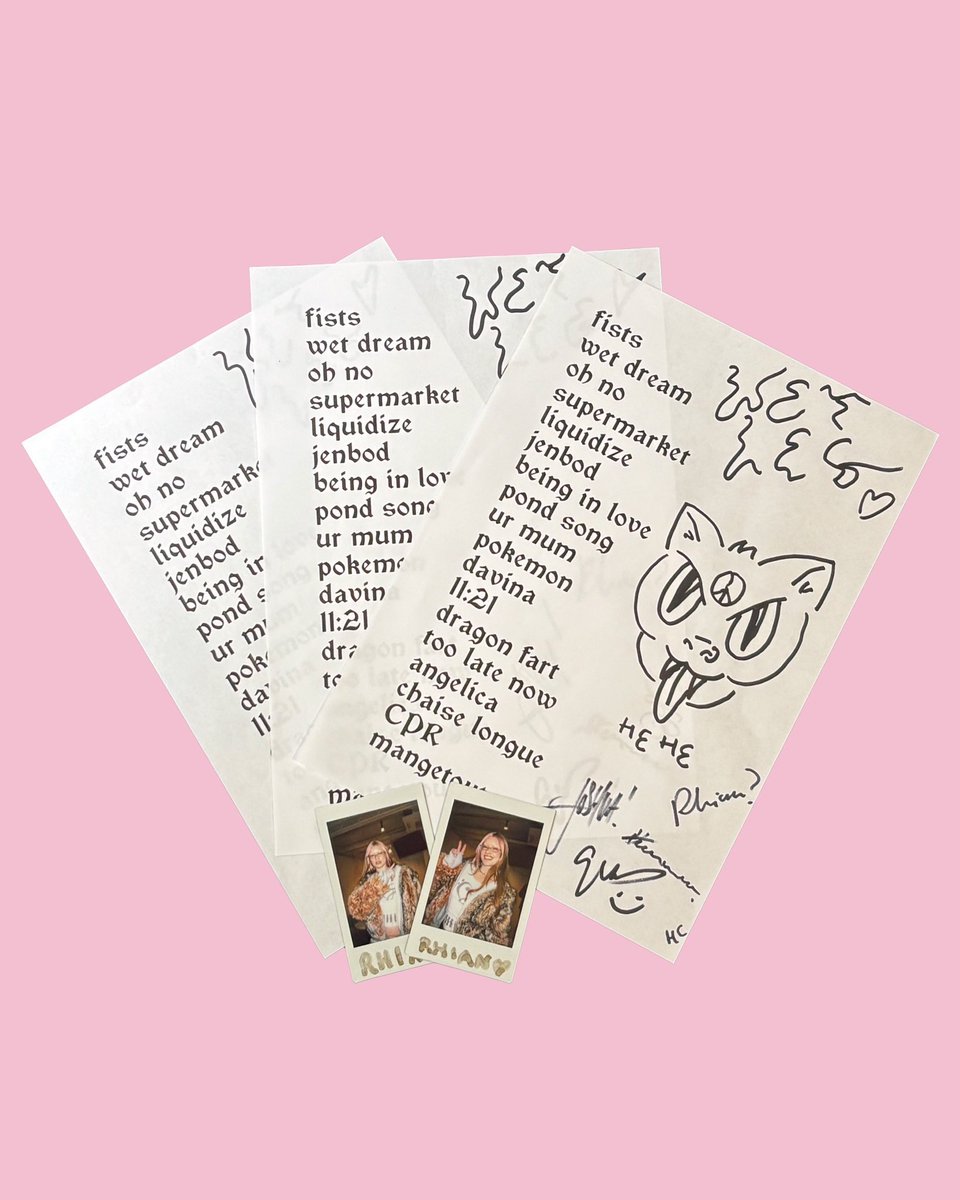 fists
wet dream
oh no
supermarke
liquidize
jenbod
being in
pond s
ur mu
pok
dav
11:
fists
wet dream
oh no
supermarket
liquidize
jenbod
being in lov
pond song
ur mum
pokem
davin
11:21
dra
to
ma
fists
wet dream
oh no
supermarket
liquidize
jenbod
being in love
pond song
ur mum
pokemon
davina
11:21
dragon fart
too late now
angelica
chaise longue
CPR
mangetout
WET
LEG
HE HE
JOSHUA!
Rhian?
HC
RHIA
RHIAN